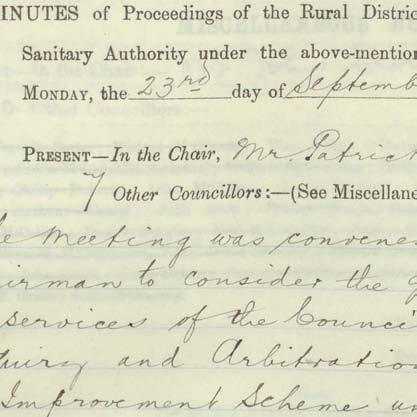 INUTES of Proceedings of the Rural Distric
Sanitary Authority under the above-mention
MONDAY, the 23rd day of Septemb
PRESENT—In the Chair, Mr. Patrick
7 Other Councillors:—(See Miscellane
e Meeting was convene
irman to consider the
services of the Counci
uiry and Arbitration
Improvement Scheme un